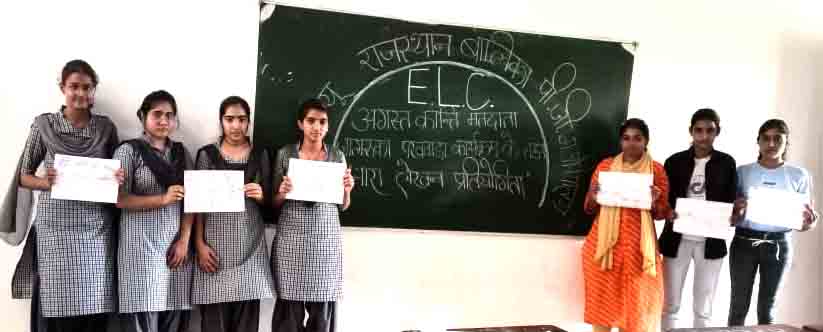 राजस्थान बालिका पी.जी.
E.L.C.
अगस्त क्रान्ति मतदाता
जागरूकता पखवाड़ा कार्यक्रम के तहत
नारा लेखन प्रतियोगिता